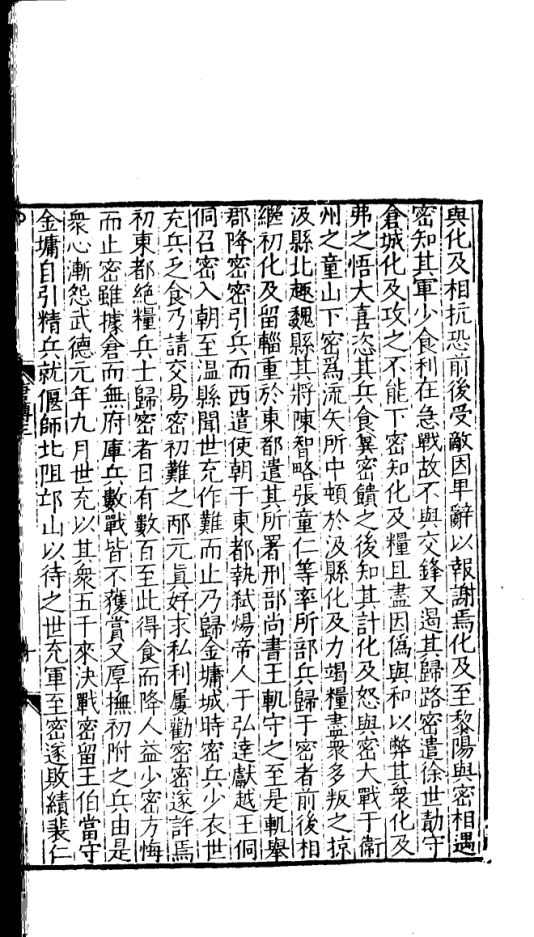 與化及相抗恐前後受敵因卑辭以報謝焉化及至黎陽與密相遇
密知其軍少食利在急戰故不與交鋒又遏其歸路密遣徐世勣守
倉城化及攻之不能下密知化及糧且盡因僞與和以弊其衆化及
弗之悟大喜恣其兵食冀密饋之後知其計化及怒與密大戰于衞
州之童山下密爲流矢所中頓於汲縣化及力竭糧盡衆多叛之掠
汲縣北趣魏縣其將陳智略張童仁等率所部兵歸于密者前後相
繼初化及留輜重於東都遣其所署刑部尚書王軌守之至是軌舉
郡降密密引兵而西遣使朝于東都執弑煬帝人于弘達獻越王侗
侗召密入朝至温縣聞世充作難而止乃歸金墉城時密兵少衣世
充兵乏食乃請交易密初難之邴元眞好求私利屢勸密密遂許焉
初東都絶糧兵士歸密者日有數百至此得食而降人益少密方悔
而止密雖據倉而無府庫兵數戰皆不獲賞又厚撫初附之兵由是
衆心漸怨武德元年九月世充以其衆五千來決戰密留王伯當守
金墉自引精兵就偃師北阻邙山以待之世充軍至密遂敗績裴仁